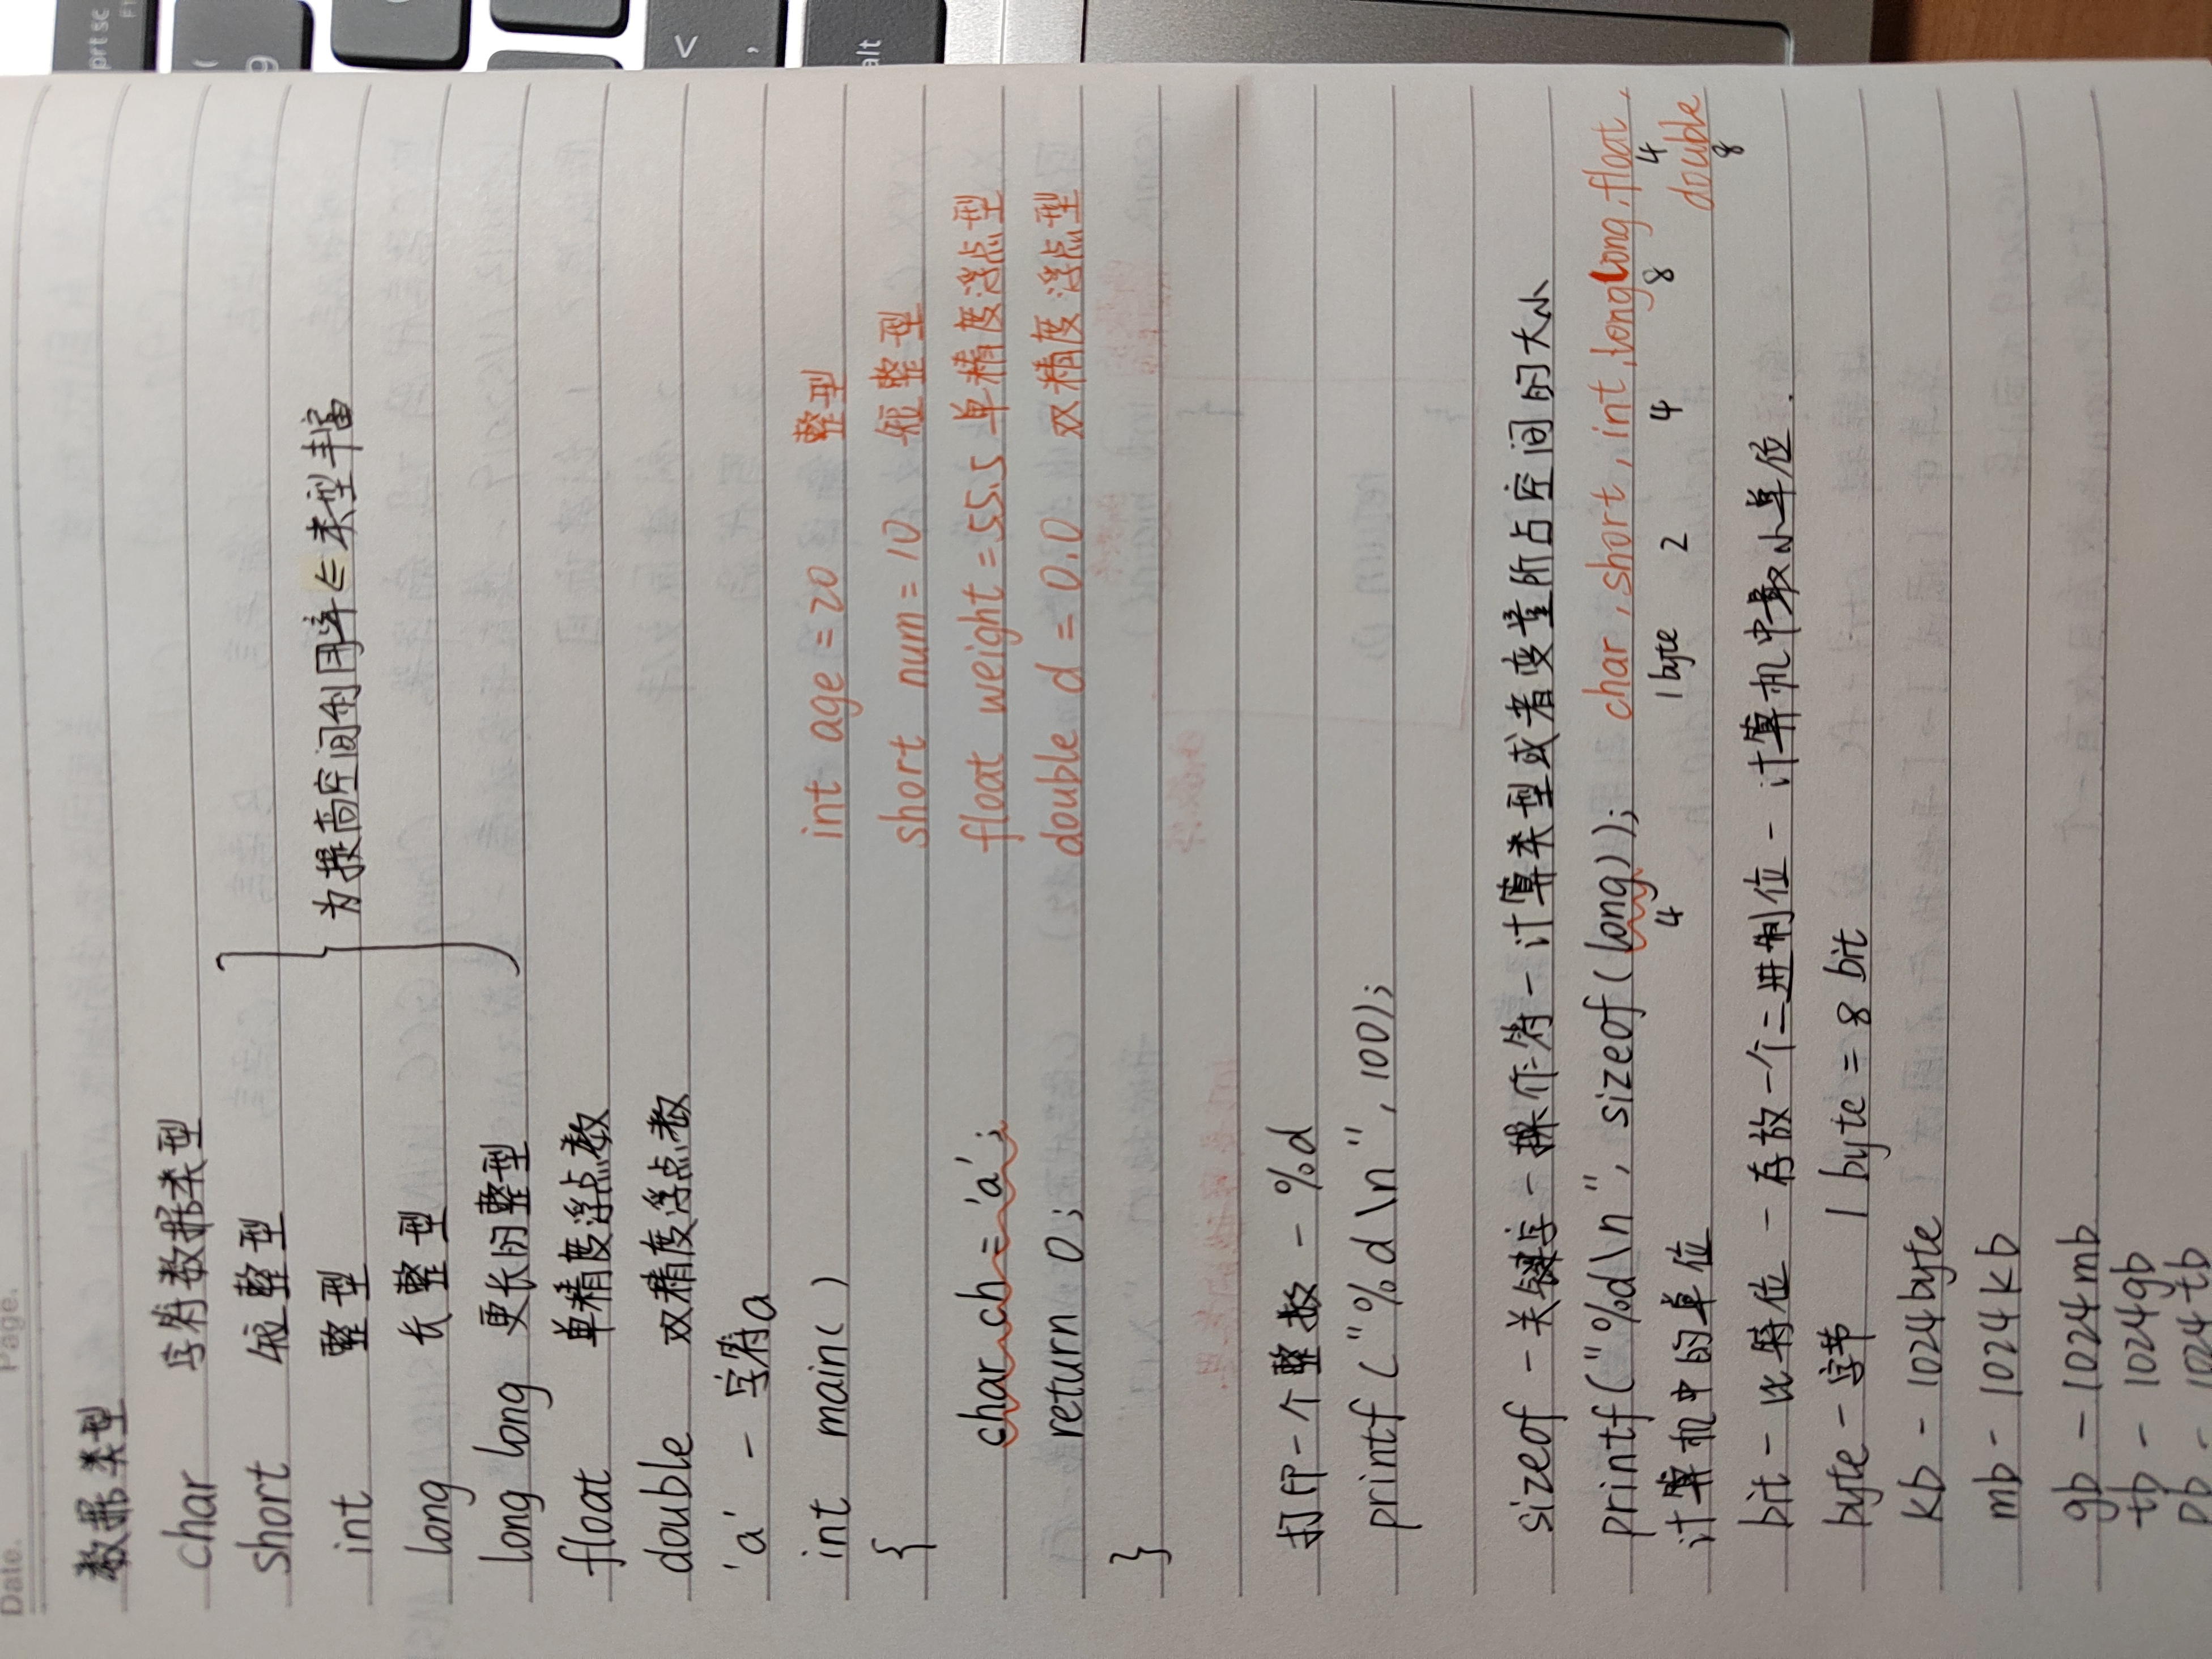 prt sc
F1
(
9
<
,
alt
Date.
Page.
数据类型
char 字符数据类型
short 短整型
int 整型
为提高空间利用率 ⇐ 类型丰富
long 长整型
long long 更长的整型
float 单精度浮点数
double 双精度浮点数
'a' - 字符a
int main( ) int age = 20 整型
{ short num = 10 短整型
char ch = 'a'; float weight = 55.5 单精度浮点型
return 0; double d = 0.0 双精度浮点型
}
打印一个整数 - %d
printf ("%d\n", 100);
sizeof - 关键字 - 操作符 - 计算类型或者变量所占空间的大小
printf("%d\n", sizeof(long)); char, short, int, long long, float,
4 1 byte 2 4 8 4
double
8
计算机中的单位
bit - 比特位 - 存放一个二进制位 - 计算机中最小单位.
byte - 字节 1 byte = 8 bit
kb - 1024 byte
mb - 1024 kb
gb - 1024 mb
tb - 1024gb
pb - 1024 tb